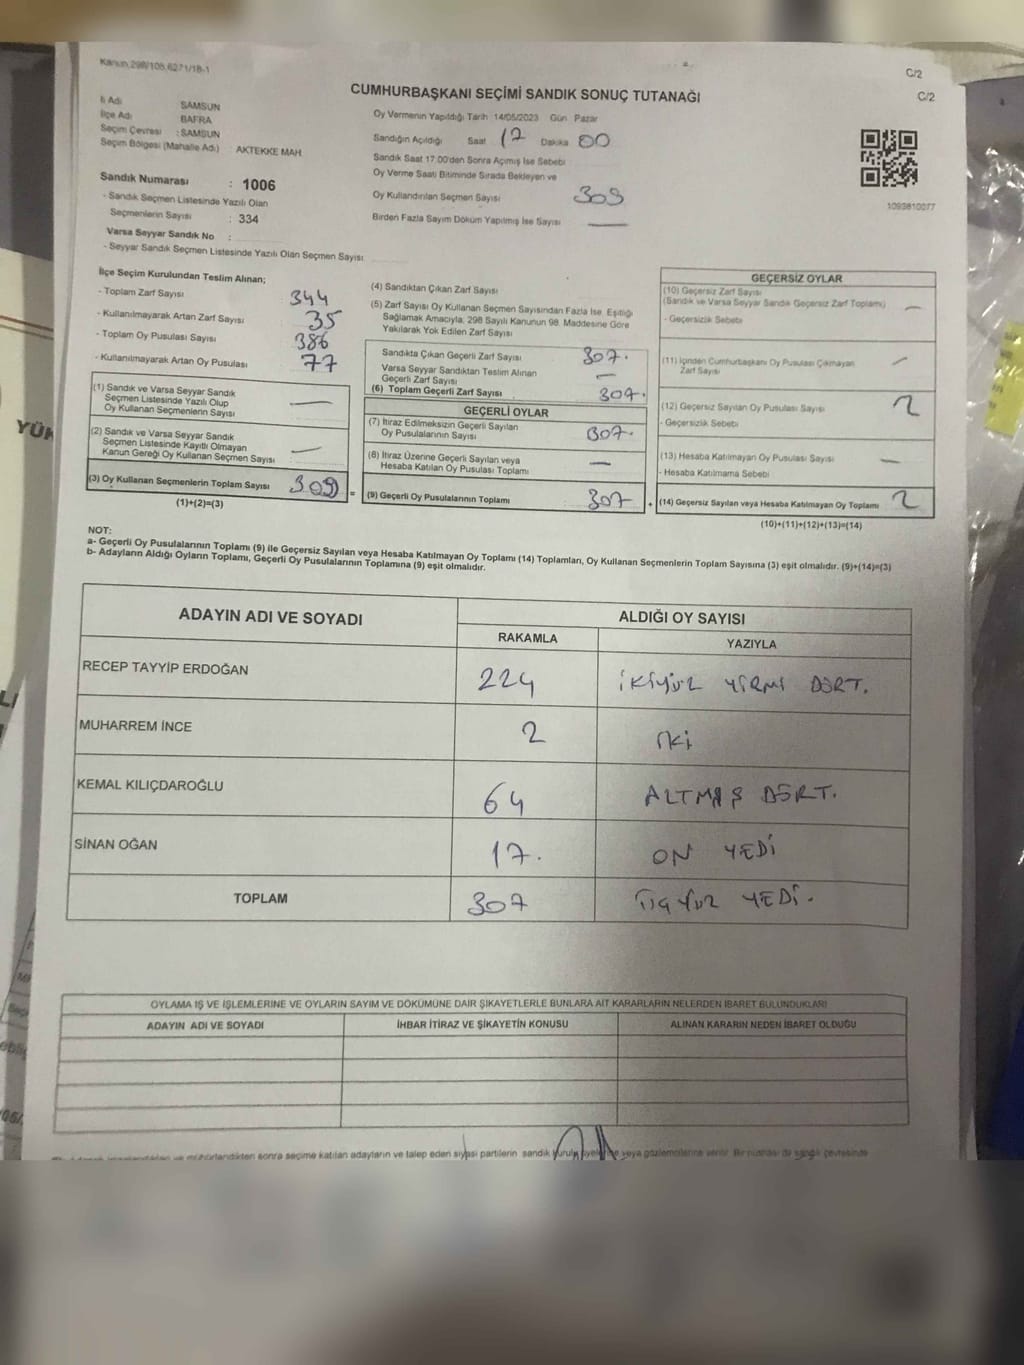 Kanun,298/105,6271/18-1
C/2
C/2
CUMHURBAŞKANI SEÇİMİ SANDIK SONUÇ TUTANAĞI
İl Adı SAMSUN
İlçe Adı BAFRA
Seçim Çevresi : SAMSUN
Seçim Bölgesi (Mahalle Adı) : AKTEKKE MAH
Sandık Numarası : 1006
- Sandık Seçmen Listesinde Yazılı Olan
Seçmenlerin Sayısı : 334
Varsa Seyyar Sandık No :
- Seyyar Sandık Seçmen Listesinde Yazılı Olan Seçmen Sayısı
Oy Vermenin Yapıldığı Tarih 14/05/2023 Gün Pazar
Sandığın Açıldığı Saat 17 Dakika 00
Sandık Saat 17.00'den Sonra Açımış İse Sebebi
Oy Verme Saati Bitiminde Sırada Bekleyen ve
Oy Kullandırılan Seçmen Sayısı 309
Birden Fazla Sayım Döküm Yapılmış İse Sayısı —
1093810077
İlçe Seçim Kurulundan Teslim Alınan;
- Toplam Zarf Sayısı 344
- Kullanılmayarak Artan Zarf Sayısı 35
- Toplam Oy Pusulası Sayısı 386
- Kullanılmayarak Artan Oy Pusulası 77
(1) Sandık ve Varsa Seyyar Sandık
Seçmen Listesinde Yazılı Olup
Oy Kullanan Seçmenlerin Sayısı —
(2) Sandık ve Varsa Seyyar Sandık
Seçmen Listesinde Kayıtlı Olmayan
Kanun Gereği Oy Kullanan Seçmen Sayısı : —
(3) Oy Kullanan Seçmenlerin Toplam Sayısı 309 =
(1)+(2)=(3)
(4) Sandıktan Çıkan Zarf Sayısı
(5) Zarf Sayısı Oy Kullanan Seçmen Sayısından Fazla İse, Eşitliği
Sağlamak Amacıyla, 298 Sayılı Kanunun 98. Maddesine Göre
Yakılarak Yok Edilen Zarf Sayısı
Sandıkta Çıkan Geçerli Zarf Sayısı 307.
Varsa Seyyar Sandıktan Teslim Alınan
Geçerli Zarf Sayısı —
(6) Toplam Geçerli Zarf Sayısı 307.
GEÇERLİ OYLAR
(7) İtiraz Edilmeksizin Geçerli Sayılan
Oy Pusulalarının Sayısı 307.
(8) İtiraz Üzerine Geçerli Sayılan veya
Hesaba Katılan Oy Pusulası Toplamı —
(9) Geçerli Oy Pusulalarının Toplamı 307 +
GEÇERSİZ OYLAR
(10) Geçersiz Zarf Sayısı
(Sandık ve Varsa Seyyar Sandık Geçersiz Zarf Toplamı) —
- Geçersizlik Sebebi
(11) İçinden Cumhurbaşkanı Oy Pusulası Çıkmayan
Zarf Sayısı —
(12) Geçersiz Sayılan Oy Pusulası Sayısı 2
- Geçersizlik Sebebi
(13) Hesaba Katılmayan Oy Pusulası Sayısı —
- Hesaba Katılmama Sebebi
(14) Geçersiz Sayılan veya Hesaba Katılmayan Oy Toplamı 2
(10)+(11)+(12)+(13)=(14)
NOT:
a- Geçerli Oy Pusulalarının Toplamı (9) ile Geçersiz Sayılan veya Hesaba Katılmayan Oy Toplamı (14) Toplamları, Oy Kullanan Seçmenlerin Toplam Sayısına (3) eşit olmalıdır. (9)+(14)=(3)
b- Adayların Aldığı Oyların Toplamı, Geçerli Oy Pusulalarının Toplamına (9) eşit olmalıdır.
ADAYIN ADI VE SOYADI ALDIĞI OY SAYISI
RAKAMLA YAZIYLA
RECEP TAYYİP ERDOĞAN 224 İKİYÜZ YİRMİ DÖRT.
MUHARREM İNCE 2 İki
KEMAL KILIÇDAROĞLU 64 ALTMIŞ DÖRT.
SİNAN OĞAN 17. ON YEDİ
TOPLAM 307 ÜÇYÜZ YEDİ.
OYLAMA İŞ VE İŞLEMLERİNE VE OYLARIN SAYIM VE DÖKÜMÜNE DAİR ŞİKAYETLERLE BUNLARA AİT KARARLARIN NELERDEN İBARET BULUNDUKLARI
ADAYIN ADI VE SOYADI İHBAR İTİRAZ VE ŞİKAYETİN KONUSU ALINAN KARARIN NEDEN İBARET OLDUĞU
sonra seçime katılan adayların ve talep eden siyasi partilerin sandık kurulu üyelerine veya gözlemcilerine verilir. Bir nüshası da sandık çevresinde